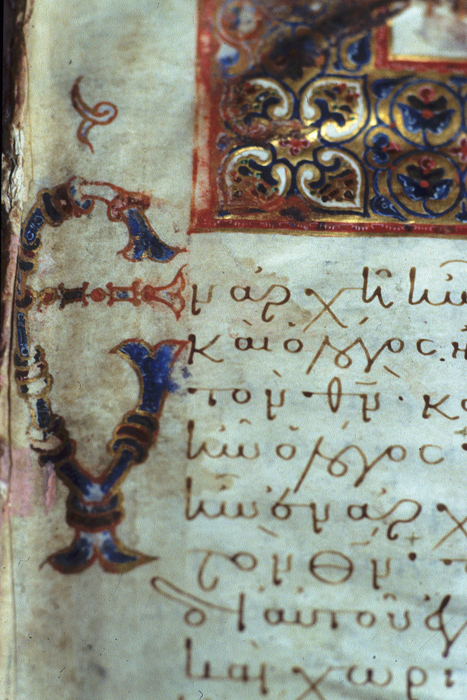 Ἐν ἀρχῆ ἦν
καὶ ὁ λόγος. ἦ
τὸν θν̅· κα
ἦν ὁ λόγος
ἦν ἐν ἀρχ
τὸν θν̅·
δι αὐτοῦ ἐ
καὶ χωρὶ